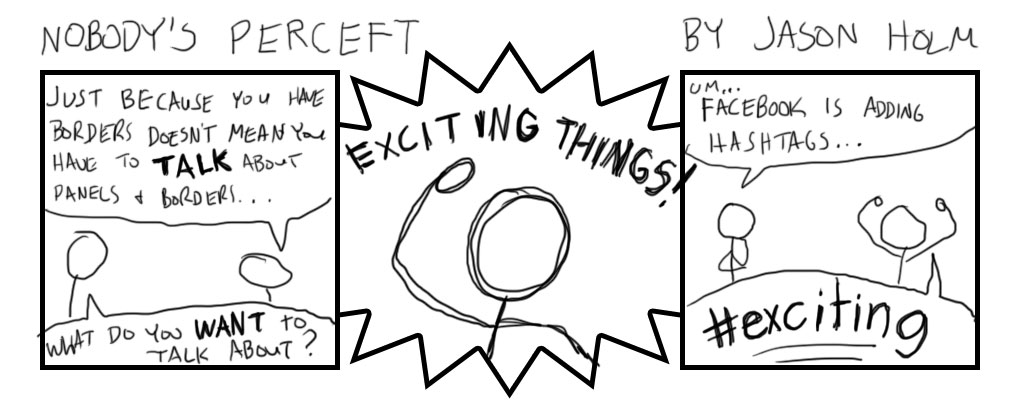 NOBODY'S PERCEFT
BY JASON HOLM
JUST BECAUSE YOU HAVE
BORDERS DOESN'T MEAN YOU
HAVE TO TALK ABOUT
PANELS & BORDERS...
WHAT DO YOU WANT TO
TALK ABOUT?
EXCITING THINGS!
UM...
FACEBOOK IS ADDING
HASHTAGS...
#exciting